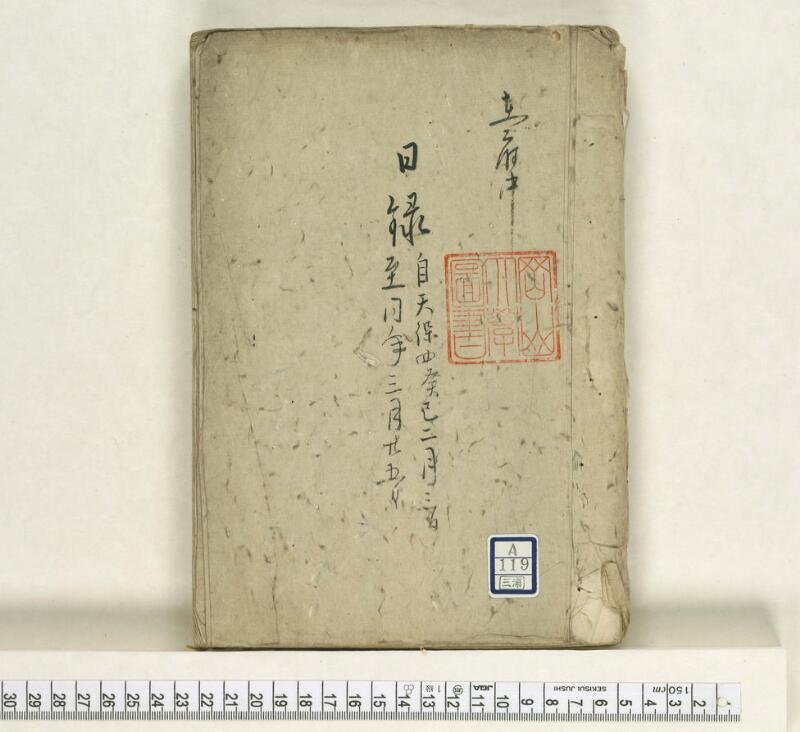 府中
日録
自天保四癸巳二月三日
至同年三月廿五日
岡山
大學
圖書
A
119
三浦
30 29 28 27 26 25 24 23 22 21 20 19 18 17 16 15 14 13 12 11 10 9 8 7 6 5 4 3 2 1
1級 JQA SEKISUI JUSHI 150cm